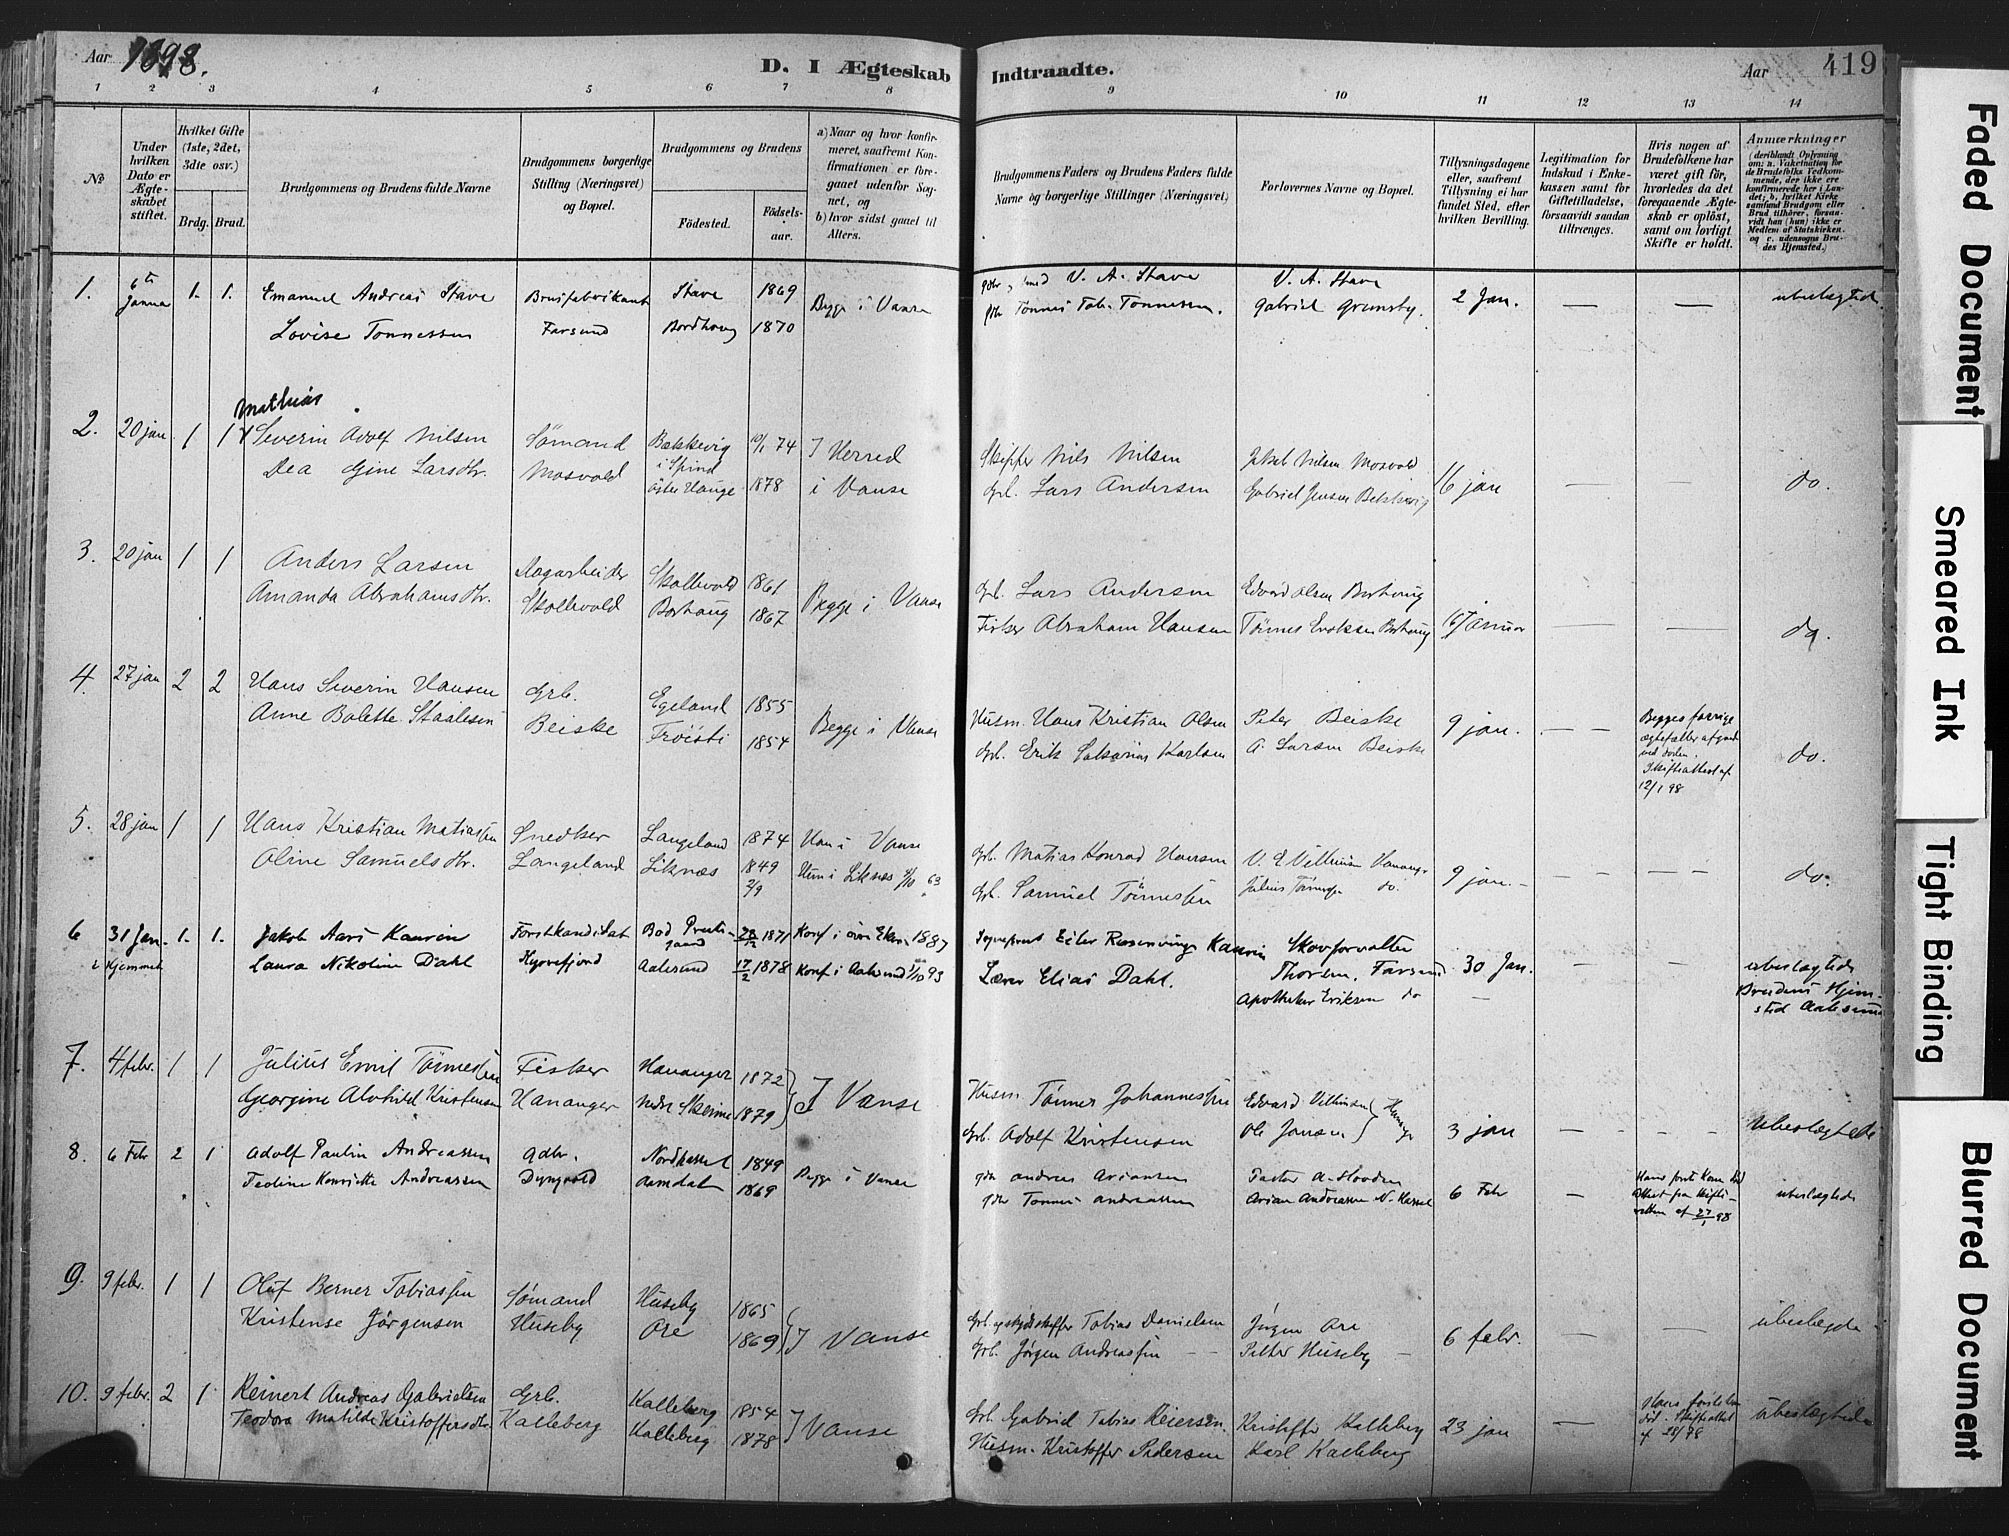 Aar 1898.
D. I Ægteskab Indtraadte.
Aar
419
1 2 3 4 5 6 7 8 9 10 11 12 13 14
No
Under hvilken Dato er Ægteskabet stiftet.
Hvilket Gifte (1ste, 2det, 3die osv.)
Brdg. Brud.
Brudgommens og Brudens fulde Navne
Brudgommens borgerlige Stilling (Næringsvei) og Bopæl.
Brudgommens og Brudens
Fødested. Fødselsaar.
a) Naar og hvor konfirmeret, saafremt Konfirmationen er foregaaet udenfor Sognet, og
b) hvor sidst gaaet til Alters.
Brudgommens Faders og Brudens Faders fulde Navne og borgerlige Stillinger (Næringsvei)
Forlovernes Navne og Bopæl.
Tillysningsdagene eller, saafremt Tillysning ei har fundet Sted, efter hvilken Bevilling.
Legitimation for Indskud i Enkekassen samt for Giftetilladelse, forsaavidt saadan tiltrænges.
Hvis nogen af Brudefolkene har været gift før, hvorledes da det foregaaende Ægteskab er opløst, samt om lovligt Skifte er holdt.
Anmærkninger (deriblandt Oplysning om: a. Vakcination for de Brudefolks Vedkommende, der ikke ere konfirmerede her i Landet; b. hvilket Kirkesamfund Brudgom eller Brud tilhører, forsaavidt han (hun) ikke er Medlem af Statskirken, og c. udensogns Brudes Hjemsted.)
1. 6te Janua 1. 1. Emanuel Andreas Stave Brusfabrikant Stave 1869 Begge i Vanse V. A. Stave V. A. Stave 2 Jan. — — ubeslægtede
Lovise Tønnessen Farsund Bordhaug 1870 Tønnes Tob. Tønnesen. Gabriel Grumsby.
Mathias
2. 20 jan 1 1 Severin Adolf Nilsen Sømand Bækkevig i Spind 10/1 74 I Herred Skipper Nils Nilsen Jakob Nilsen Mosvold 16 jan — — do.
Dea Gine Larsdtr. Mosvold Øster Hauge 1878 i Vanse Grb. Lars Andersen Gabriel Jensen
3. 20 jan 1 1 Anders Larsen Dagarbeider Skollevold 1861 Begge i Vanse Grb. Lars Andersen Edvard Olsen Borhaug 16 Januar — — do.
Amanda Abrahamsdtr. Skollevold Borhaug 1867 Fisker Abraham Hansen Tønnes Eriksen Borhaug
4. 27 jan 2 2 Hans Severin Hansen Grb. Egeland 1855 Begge i Vanse Husm. Hans Kristian Olsen Peter Beiske 9 jan. — — Begges forrige ægtefæller afgaaet ved døden. Skifteattest af 12/1 98 do.
Anne Bolette Staalesen Beiske Frøisti 1854 Grb. Erik Sakarias Karlsen A. Larsen Beiske
5. 28 jan 1 1 Hans Kristian Matiassen Snedker Langeland 1874 Han i Vanse Grb. Matias Konrad Hansen V. E. Villumsen 9 jan. — — — — do.
Oline Samuelsdtr. Langeland Liknæs 1849 2/9 Hun i Liknæs 4/10 63 Grb. Samuel Tønnessen Julius do.
6 31 Jan. i Hjemmet 1. 1. Jakob Aars Kaurin Forstkandidat 28/12 1871 1887 Sogneprest Eiler Rosenvinge Kaurin Skovforvalter Thorsen, Farsund 30 Jan. — — ubeslægtede
Laura Nikoline Dahl Kjørrefjord Aalesund 17/2 1878 Konf i Aalesund 1/10 93 Lærer Elias Dahl. Apotheker Eriksen do Brudens Hjemsted Aalesund
7. 4 febr. 1 1 Julius Emil Tønnessen Fisker Hananger 1872 I Vanse Husm. Tønnes Johannessen Edvard Villumsen 3 jan — — — — ubeslægtede
Georgine Alvhild Kristensen Hananger Nedre Skeime 1879 Grb. Adolf Kristensen Ole Jansen
8. 6 Febr 2 1 Adolf Paulin Andreassen Gdbr. Nordhassel 1849 Begge i Vanse Andreas Ariansen Pastor A. Hovden 6 Febr — Hans første Kone død Attest fra Skifteretten af 27/1 98 ubeslægtede
Teoline Henriette Andreassen Dyngvold Aamdal 1869 Tønnes Andreassen Arian Andreassen N. Hassel
9. 9 febr. 1 1 Oluf Berner Tobiassen Sømand Huseby 1865 I Vanse Grb. og Tobias Danielsen Jørgen Ore 6 febr. — — ubeslægtede
Kristense Jørgensen Huseby Ore 1869 Grb. Jørgen Andreassen Petter Huseby
10. 9 febr. 2 1 Reinert Andreas Gabrielsen Grb. Kalleberg 1854 I Vanse Grb. Gabriel Tobias Reiersen. Kristoffer Kalleberg 23 jan — Hans første død. Skifteattest ubeslægtede
Teodora Matilde Kristoffersdtr. Kalleberg Kalleberg 1878 Husm. Kristoffer Pedersen Karl Kalleberg
Faded Document
Smeared Ink
Tight Binding
Blurred Document